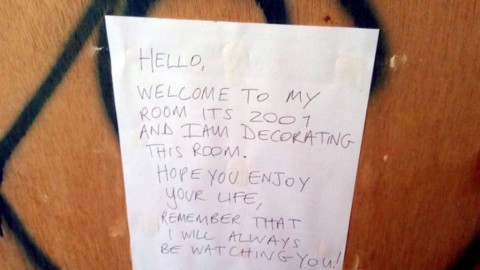 HELLO,
WELCOME TO MY
ROOM ITS 2001
AND I AM DECORATING
THIS ROOM.
HOPE YOU ENJOY
YOUR LIFE,
REMEMBER THAT
I WILL ALWAYS
BE WATCHING YOU!